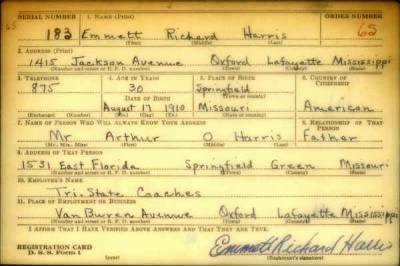 SERIAL NUMBER 1. NAME (Print) ORDER NUMBER
183 Emmett Richard Harris 65
(First) (Middle) (Last)
2. ADDRESS (Print)
1415 Jackson Avenue Oxford Lafayette Mississippi
(Number and street or R. F. D. number) (Town) (County) (State)
3. TELEPHONE 4. AGE IN YEARS 5. PLACE OF BIRTH 6. COUNTRY OF CITIZENSHIP
875 30 Springfield
DATE OF BIRTH (Town or county)
August 17 1910 Missouri American
(Exchange) (Number) (Mo.) (Day) (Yr.) (State or country)
7. NAME OF PERSON WHO WILL ALWAYS KNOW YOUR ADDRESS 8. RELATIONSHIP OF THAT PERSON
Mr Arthur O Harris Father
(Mr., Mrs., Miss) (First) (Middle) (Last)
9. ADDRESS OF THAT PERSON
1531 East Florida Springfield Green Missouri
(Number and street or R. F. D. number) (Town) (County) (State)
10. EMPLOYER'S NAME
Tri-State Coaches
11. PLACE OF EMPLOYMENT OR BUSINESS
Van Buren Avenue Oxford Lafayette Mississippi
(Number and street or R. F. D. number) (Town) (County) (State)
I AFFIRM THAT I HAVE VERIFIED ABOVE ANSWERS AND THAT THEY ARE TRUE.
REGISTRATION CARD
D. S. S. Form 1 (over) Emmett Richard Harris
(Registrant's signature)